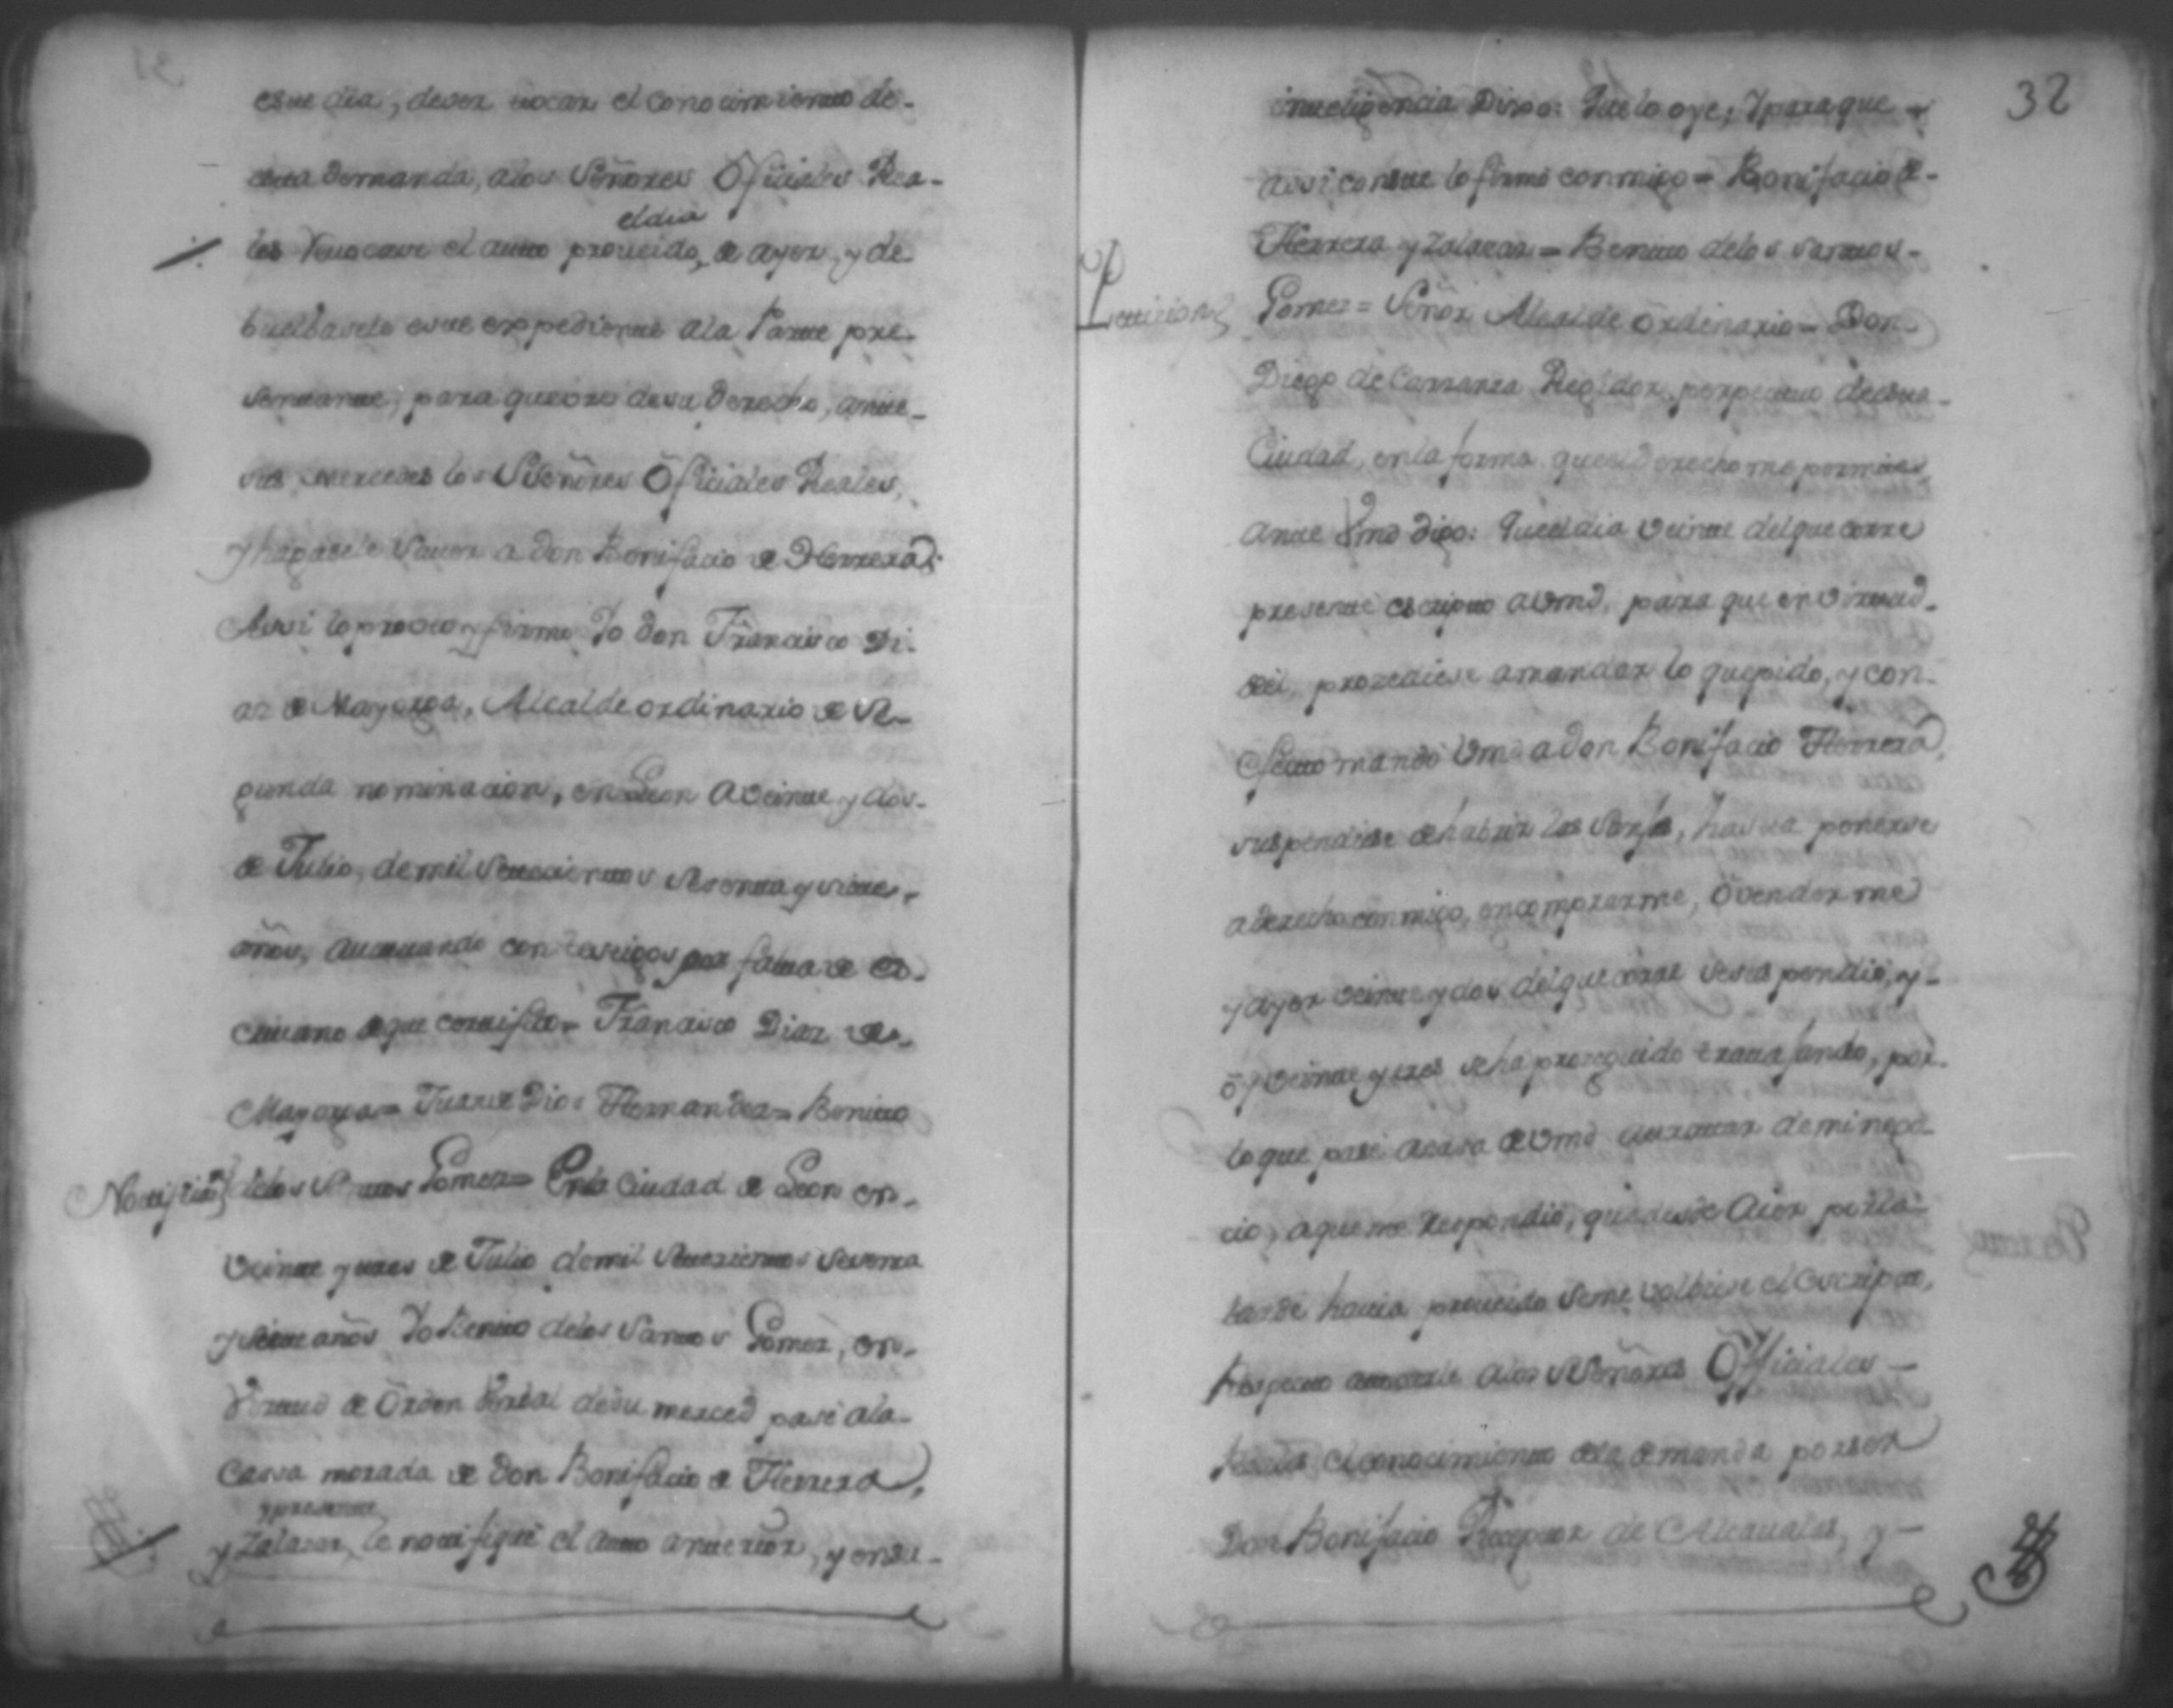 este dia, dever tocar el conocimiento de-
esta demanda, alos Señores Oficiales Rea-
el dia
les Revocase el auto proueido, de ayer, y de
buelbasele este expediente ala Parte pre-
sentante, para que vse desu derecho, ante-
sus mercedes los SSeñores Oficiales Reales,
y hagasele sauer a don Bonifacio de Herrera:
Assi lo proveo y firmo Yo don Francisco Di-
az de Mayorga, Alcalde ordinario de Se-
gunda nominacion, en Leon a veinte y dos-
de Julio, de mil setecientos sesenta y siete-
años, actuando con testigos por falta de Es-
criuano de que certifico= Francisco Diaz de-
Mayorga= Juan de Dios Hernandez= Benito
Notificaⁿ} delos Santos Gomez= En la Ciudad de Leon en-
veinte y tres de Julio de mil setezientos sesenta
y siete años Yo Benito delos Santos Gomez, en-
Virtud de Orden Verbal desu merced pasé ala-
Cassa morada de don Bonifacio de Herrera,
y presente
y Zalazar, le notifiqué el auto anterior, y ensu-
32
inteligencia Dixo: Que lo oye, Y para que
assi conste lo firmó conmigo= Bonifacio de-
Herrera y Zalazar= Benito delos Santos-
Peticion} Gomez= Señor Alcalde ordinario= Don-
Diego de Carranza Regidor perpetuo de esta-
Ciudad, en la forma que el derecho me permite,
ante Vmd digo: Que el dia veinte del que corre
presenté escripto a Vmd, para que en virtud-
de el, prozediese a mandar lo que pido, y con-
efecto mandó Vmd a don Bonifacio Herrera,
suspendiese de habrir las Sanjas, hasta ponerse
a derecho conmigo, en comprarme, ó venderme
y ayer veinte y dos del que corre se suspendió, y-
oy veinte y tres se ha prozeguido trauajando, por-
lo que pasé a casa de Vmd a tratar de mi nego-
cio, a que me respondió, que desde Aier por la-
tarde hauia proueido seme volbiese el Escripto,
Respecto a tocarle alos SSeñores Officiales-
Reales el conocimiento de la demanda por ser
Don Bonifacio Receptor de Alcaualas, y-